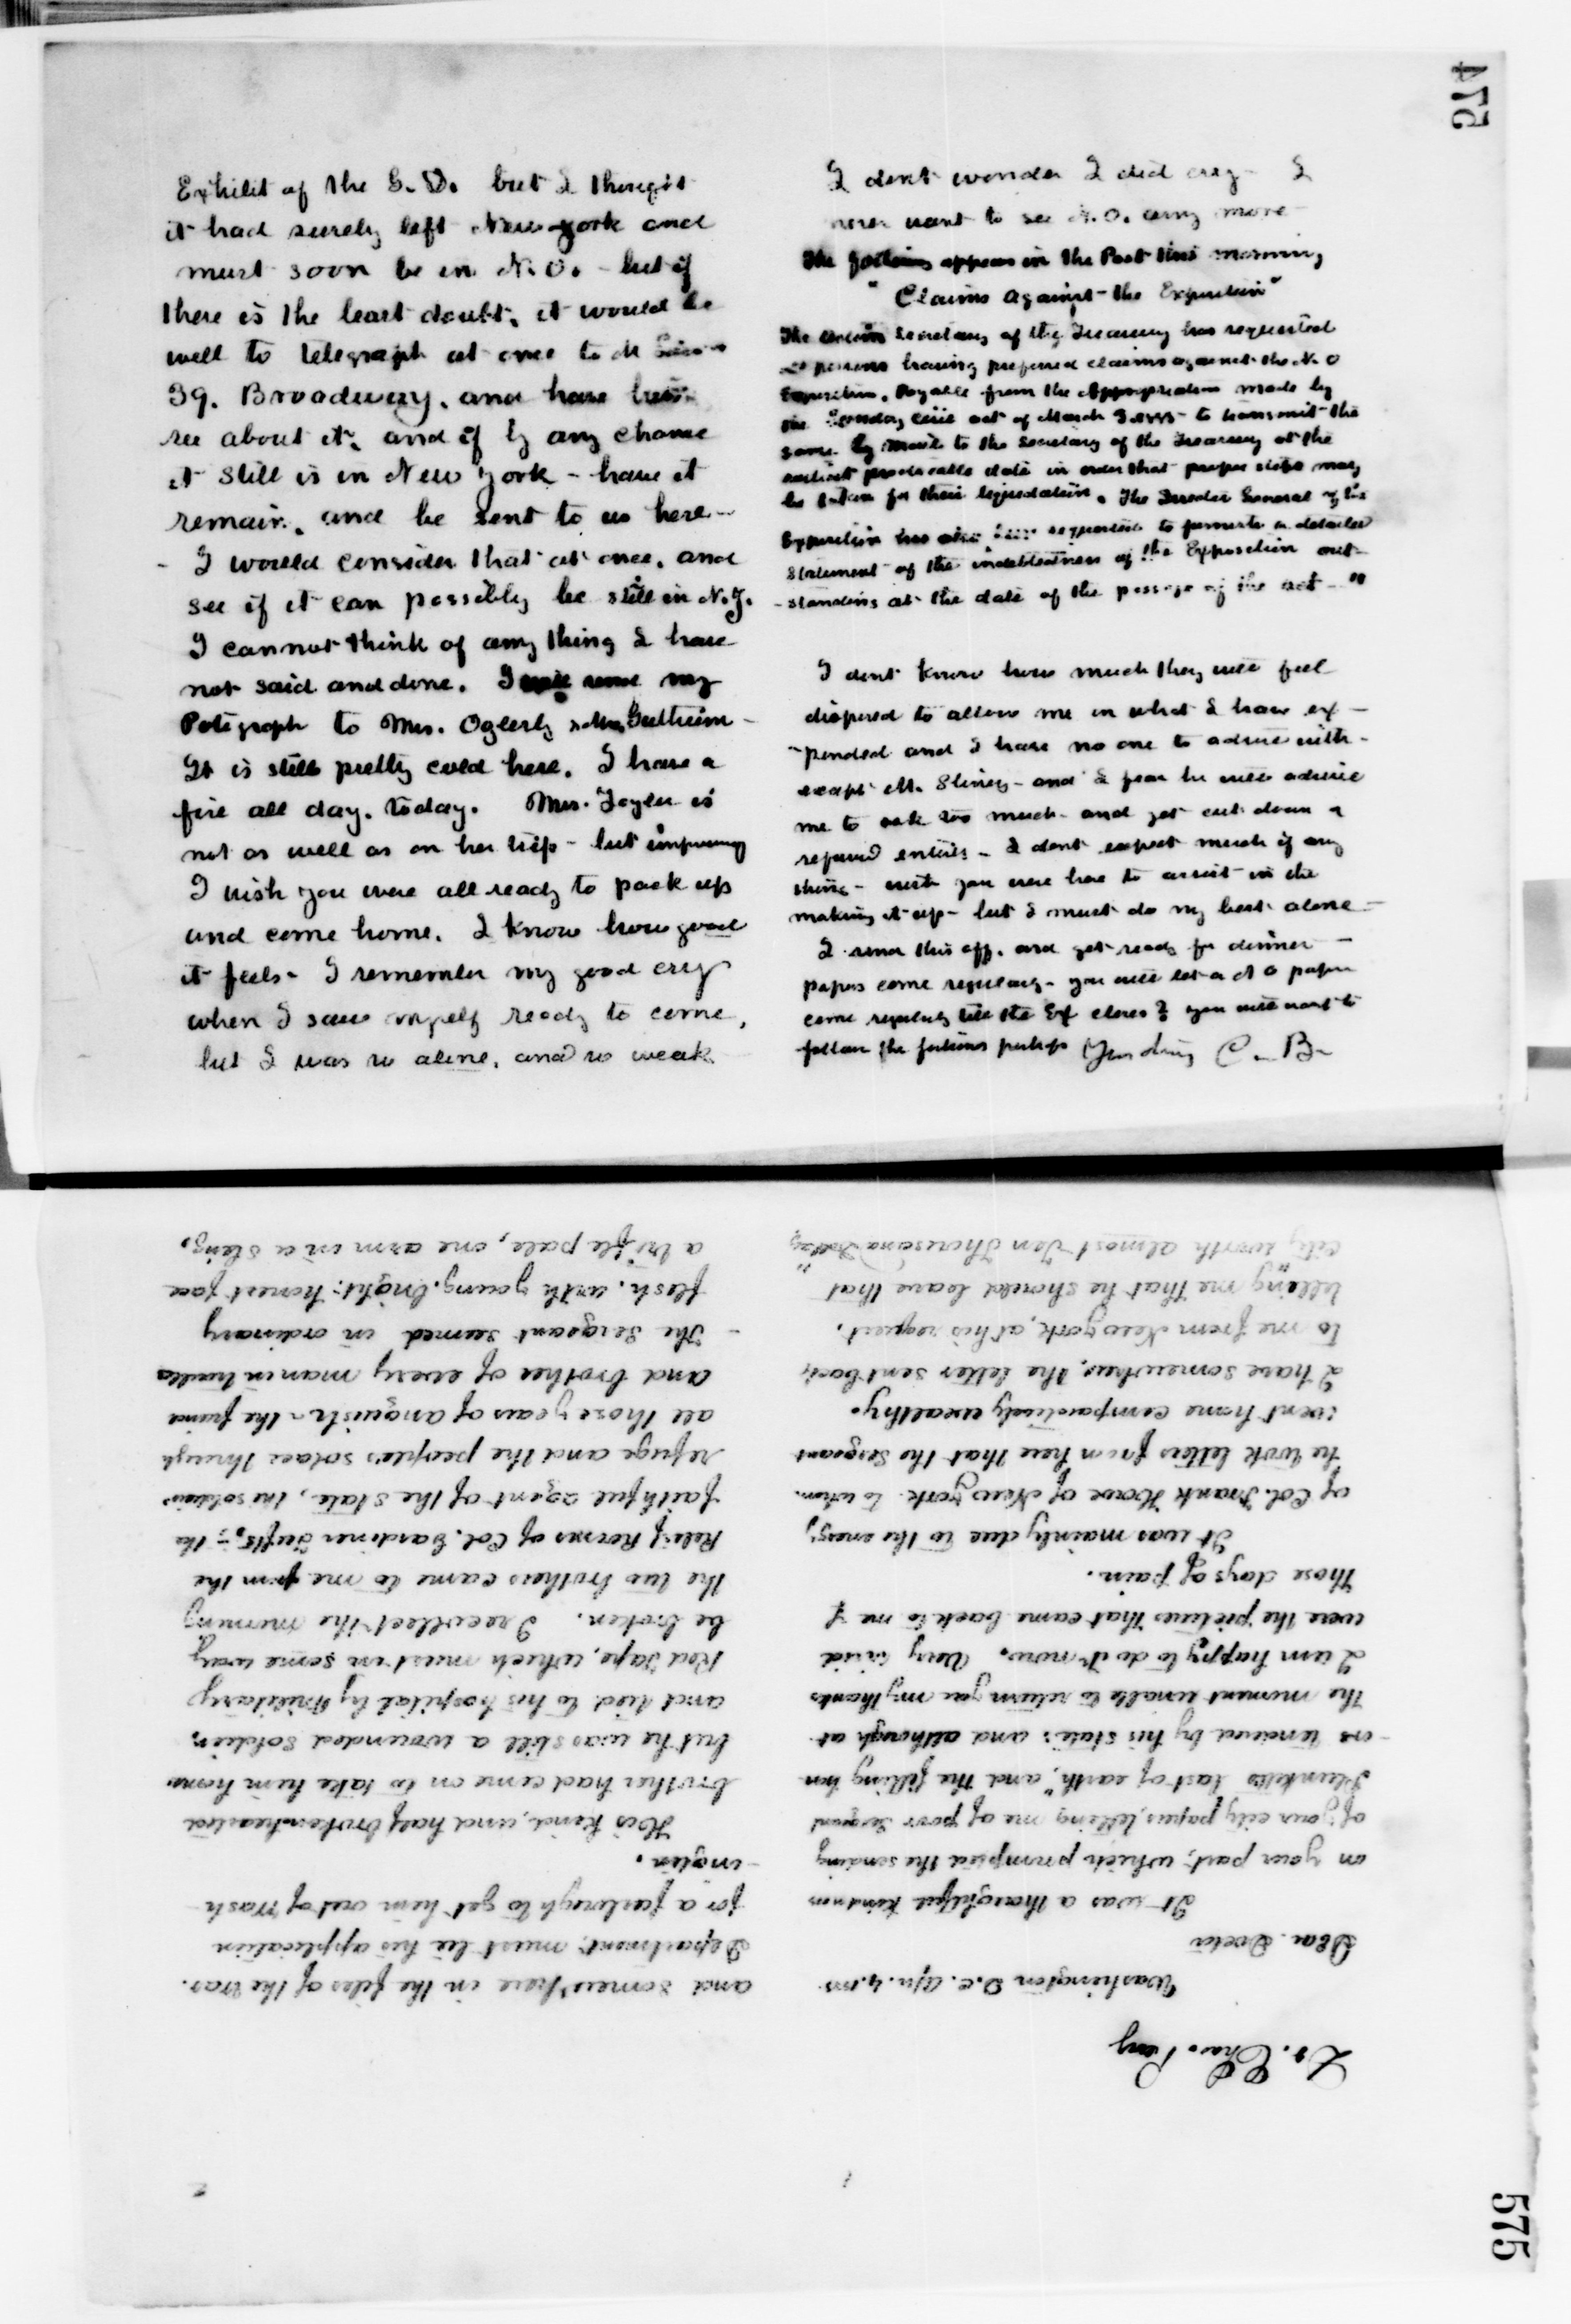 574
Exhibit of the S.D. but I thought
it had surely left New York and
must soon be in N.O. - but if
there is the least doubt, it would be
well to telegraph at once to M
39. Broadway, and have him
see about it, and if by any chance
it still is in New York - have it
remain, and be sent to us here -
- I would consider that at once, and
see if it can possibly be still in N.Y.
I cannot think of any thing I have
not said and done. I my
Poligraph to Mrs. Oglesby & Mrs. Gutheim -
It is still pretty cold here. I have a
fire all day, today. Mrs. Tayler is
not as well as on her trip - but improving
I wish you were all ready to pack up
and come home. I know how good
it feels - I remember my good cry
when I saw myself ready to come,
but I was so alone, and so weak
I dont wonder I did cry - I
never want to see N.O. any more -
The following appears in the Post this morning
"Claims against the Exposition"
The Secretary of the Treasury has requested
persons having preferred claims against the N.O
Exposition, payable from the Appropriation made by
the Sunday Civil act of March to transmit the
same by mail to the Secretary of the Treasury at the
earliest practicable date in order that proper steps may
be taken for their liquidation. The Director General of the
Exposition has also been requested to furnish a detailed
statement of the indebtedness of the Exposition out-
-standing at the date of the passage of the act - "
I dont know how much they will feel
disposed to allow me in what I have ex -
-pended and I have no one to advise with -
except Mr. - and I fear he will advise
me to ask too much - and get cut down or
refused entirely - I dont expect much if any
thing - wish you were here to assist in the
making it up - but I must do my best alone -
I send this off, and get ready for dinner -
papers come regularly - you will let a N O paper
come regularly till the Ex closes? you will want to
follow the fortunes perhaps C. B-
575
Dr. Chas.
Washington D.C. Apr. 4.
Dear Doctor
It was a thoughtful kindness
on your part, which prompted the sending
of your city papers, telling me of poor Sergeant
Plunkett's last of earth, and the fitting hon
-ors tendered by his state: and although at
the moment unable to return you my thanks
I am happy to do it now. Very vivid
were the pictures that came back to me of
those days of pain.
It was mainly due to the energy
of Col. Frank Howe of New York to whom
he took letters from here that the Sergeant
went home comparatively wealthy.
I have somewhere, the letter sent back
to me from New York, at his request,
telling me that he should leave that
city worth almost Ten Thousand Dollars"
and somewhere in the files of the War
Department, must be his application
for a furlough to get him out of Wash
-ington.
His kind, and half brokenhearted
brother had come on to take him home
but he was still a wounded soldier,
and tied to his hospital by Military
Red Tape, which must in some way
be broken. I recollect the morning
the two brothers came to me from the
Relief Rooms of Col. Gardiner Tufts, - the
faithful agent of the state, the soldiers
refuge and the people's solace through
all those years of anguish - the friend
and brother of every man in trouble
- The Sergeant seemed in ordinary
flesh, with young, bright, honest face
a trifle pale, one arm in a sling,